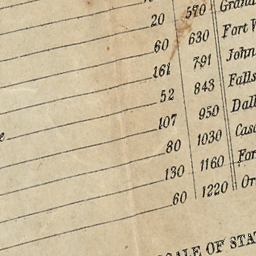 20 570 Grand
60 630 Fort
161 791 John
52 843 Falls
e 107 950 Dall
80 1030 Casc
130 1160 For
60 1220 Or
SCALE OF STAT